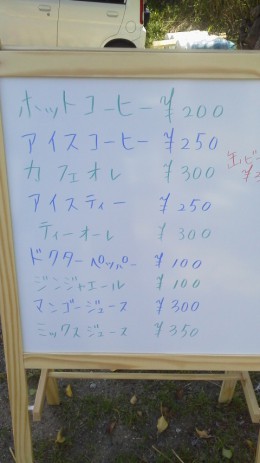 ホットコーヒー ¥200
アイスコーヒー ¥250
カフェオレ ¥300
アイスティー ¥250
ティーオーレ ¥300
ドクターペッパー ¥100
ジンジャエール ¥100
マンゴージュース ¥300
ミックスジュース ¥350